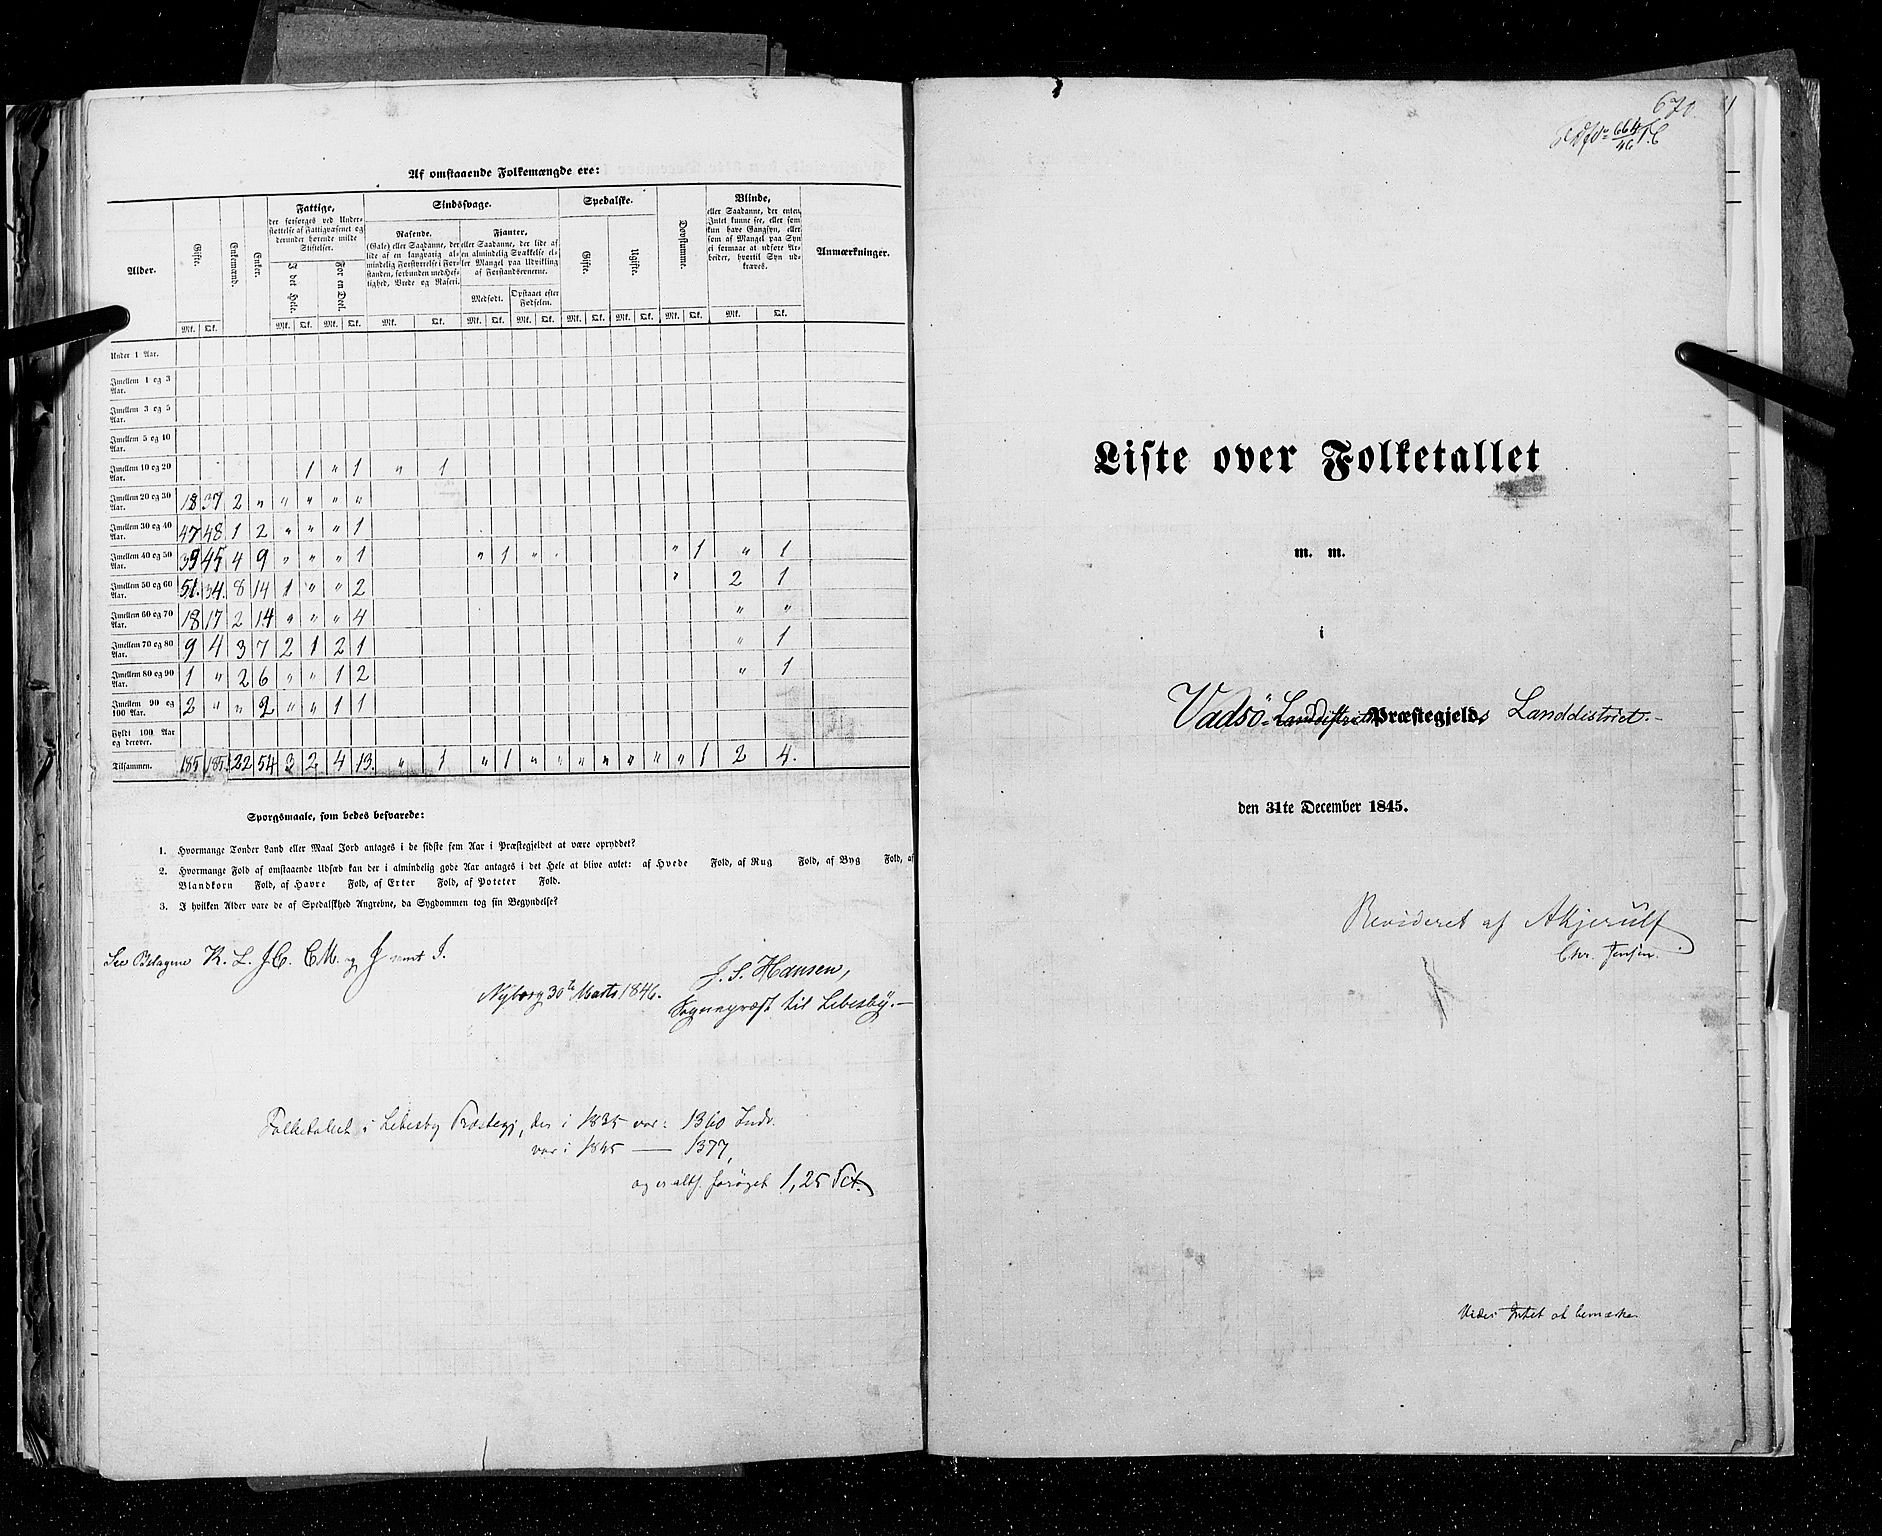 Af omstaaende Folkemængde ere:
Alder. | Gifte. | Enkemænd. | Enker. | Fattige, der forsørges ved Understøttelse af Fattigvæsenet og derunder hørende milde Stiftelser. | Sindssvage. | Spedalske. | Døvstumme. | Blinde, eller Saadanne, der enten Intet kunne see, eller som kun have Gangsyn, eller som af Mangel paa Syn ei formaae at udføre Arbeider, hvortil Syn udkræves. | Anmærkninger.
I det Hele. | For en Deel. | Rasende, (Gale) eller Saadanne, der lide af en langvarig almindelig Forstyrrelse i Forstanden, forbunden med Heftighed, Vrede og Raseri. | Fianter, eller Saadanne, der lide af en almindelig Svækkelse eller Mangel paa Udvikling af Forstandsevnerne. | Gifte. | Ugifte.
Medfødt. | Opstaaet efter Fødselen.
Mk. Qk. Mk. Qk. Mk. Qk. Mk. Qk. Mk. Qk. Mk. Qk. Mk. Qk. Mk. Qk. Mk. Qk. Mk. Qk.
Under 1 Aar.
Imellem 1 og 3 Aar.
Imellem 3 og 5 Aar.
Imellem 5 og 10 Aar.
Imellem 10 og 20 Aar. 1 " 1 " 1
Imellem 20 og 30 Aar. 18 37 2 " " " " "
Imellem 30 og 40 Aar. 47 48 1 2 " " " 1
Imellem 40 og 50 Aar. 39 45 4 9 " " " 1 " 1 " " " 1 " 1
Imellem 50 og 60 Aar. 51. 34. 8 14 1 " " 2 " 2 1
Imellem 60 og 70 Aar. 18 17 2 14 " " " 4 " "
Imellem 70 og 80 Aar. 9 4 3 7 2 1 2 1 " 1
Imellem 80 og 90 Aar. 1 " 2 6 " " 1 2 " 1
Imellem 90 og 100 Aar. 2 " " 2 " " 1 1
Fyldt 100 Aar og derover.
Tilsammen. 185 185. 22 54 3 2 4 13. " 1 " 1 " " " " " " " 1 2 4.
Spørgsmaale, som bedes besvarede:
1. Hvormange Tønder Land eller Maal Jord antages i de sidste fem Aar i Præstegjeldet at være opryddet?
2. Hvormange Fold af omstaaende Udsæd kan der i almindelig gode Aar antages i det Hele at blive avlet: af Hvede Fold, af Rug Fold, af Byg Fold, af
Blandkorn Fold, af Havre Fold, af Erter Fold, af Poteter Fold.
3. I hvilken Alder vare de af Spedalskhed Angrebne, da Sygdommen tog sin Begyndelse?
See Bilagene K. L. og samt I.
Nyborg 30te Marts 1846. J. S. Hansen,
Sognepræst til Lebesby.-
Folketallet i Lebesby Præstegj, der i 1835 var: 1360 Indv.
var i 1845 — 1377,
og er alts. forøget 1,25 Pct.
670.
664/46
Liste over Folketallet
m. m.
i
Vadsö Landdistricts Præstegjelds Landdistrict.-
den 31te December 1845.
Revideret af AKjerulf
Chr. Jensen.
Videre Intet at bemærke